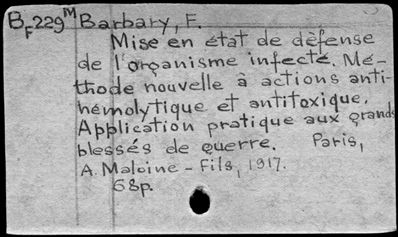 BF229M Barbary, F.
Mise en état de défense
de l'organisme infecté. Mé-
thode nouvelle à actions anti-
hémolytique et antitoxique.
Application pratique aux grands
blessés de guerre. Paris,
A. Maloine - Fils, 1917.
68p.